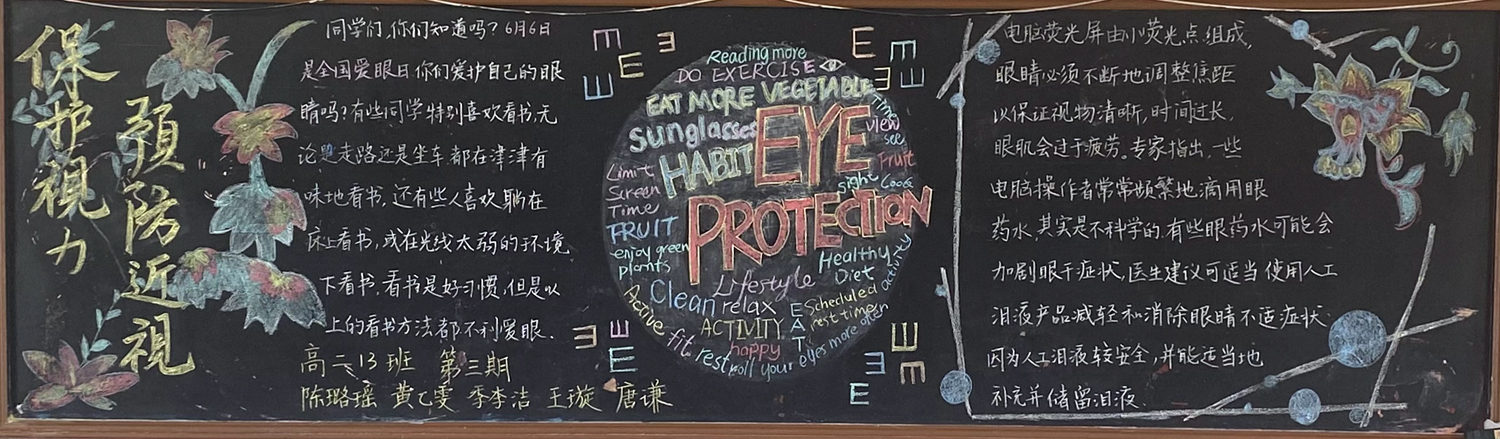 保护视力
预防近视
同学们,你们知道吗?6月6日
是全国爱眼日,你们爱护自己的眼
睛吗?有些同学特别喜欢看书,无
论是走路还是坐车,都在津津有
味地看书,还有些人喜欢躺在
床上看书,或在光线太弱的环境
下看书,看书是好习惯,但是以
上的看书方法都不利爱眼.
高二13班 第三期
陈璐瑶 黄乙雯 季李洁 王璇 唐谦
Reading more
DO EXERCISE
EAT MORE VEGETABLE
Sunglasses
EYE
Time
view
see
HABIT
Limit
Screen
Time
Fruit
sight
Look
FRUIT
PROTECTION
enjoy green
plants
Healthy
Diet
activity
Lifestyle
Clean
relax
Active
ACTIVITY
EAT
Scheduled
rest time
fit
rest
happy
roll your eyes more often
电脑荧光屏由小荧光点组成,
眼睛必须不断地调整焦距
以保证视物清晰,时间过长,
眼肌会过于疲劳。专家指出,一些
电脑操作者常常频繁地滴用眼
药水,其实是不科学的.有些眼药水可能会
加剧眼干症状,医生建议可适当使用人工
泪液产品减轻和消除眼睛不适症状.
因为人工泪液较安全,并能适当地
补充并储留泪液.